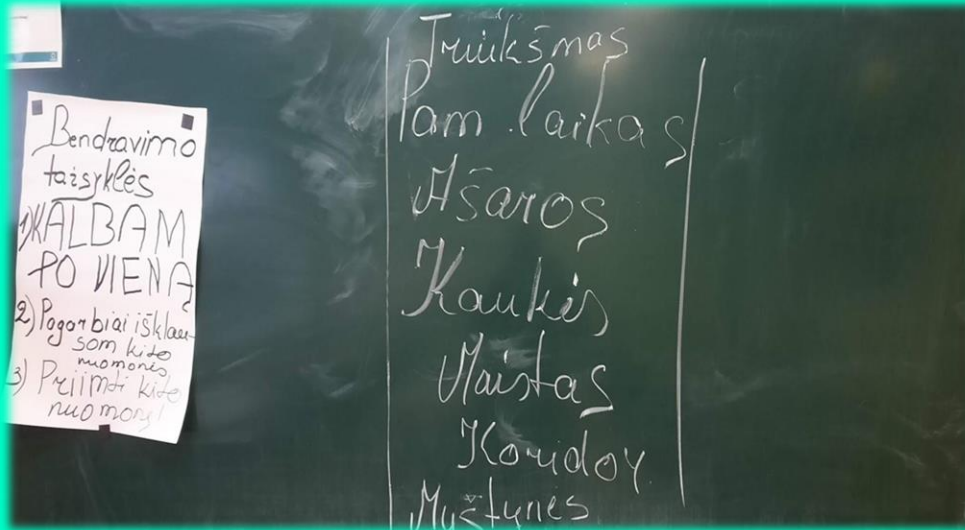 Bendravimo
taisyklės
1) KALBAM
PO VIENĄ
2) Pagarbiai išklau-
som kito
nuomonės
3) Priimti kito
nuomonę!
Triukšmas
Pam. laikas
Ašaros
Kaukės
Maistas
Koridor.
Muštynės